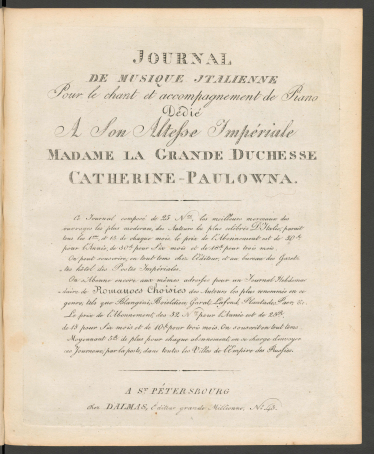 JOURNAL
DE MUSIQUE JTALIENNE
Pour le chant et accompagnement de Piano
Dédié
A Son Altesse Impériale
MADAME LA GRANDE DUCHESSE
CATHERINE-PAULOWNA.
Ce Journal composé de 25 Nos, les meilleurs morceaux des
ouvrages les plus modernes, des Auteurs les plus célèbres D'Italie, paroit
tous les 1ers et 15 de chaque mois, le prix de l'Abonnement est de 50 Rs
pour l'Année, de 30 Rs pour Six mois et de 18 Rs pour trois mois.
On peut souscrire, en tout tems chez l'Editeur, et au bureau des Gazet-
tes hôtel des Postes Impériales.
On s'Abonne encore aux mêmes adresses pour un Journal Hebdoma-
daire de Romances Choisies des Auteurs les plus renommés en ce
genre, tels que Blangini, Boieldieu, Garat, Lafond, Plantade, Paer, &c.
Le prix de l'Abonnement, des 52 Nos pour l'Année est de 25 Rs,
de 15 pour Six mois et de 10 Rs pour trois mois. On souscrit en tout tems.
Moyennant 5 Rs de plus pour chaque abonnement, on se charge d'envoyer
ces Journaux, par la poste, dans toutes les Villes de l'Empire de Russie.
A St PÉTERSBOURG
chez DALMAS, Editeur grande Millionne, No